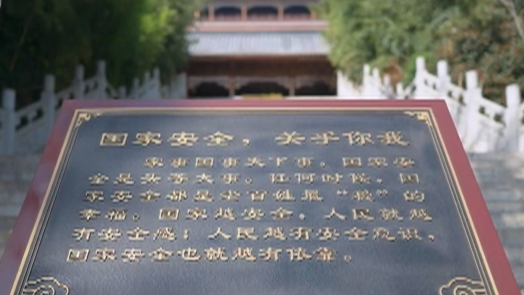 国家安全，关乎你我
家事国事天下事，国家安
全是头等大事。任何时候，国
家安全都是老百姓最“稳”的
幸福。国家越安全，人民就越
有安全感；人民越有安全意识，
国家安全也就越有依靠。